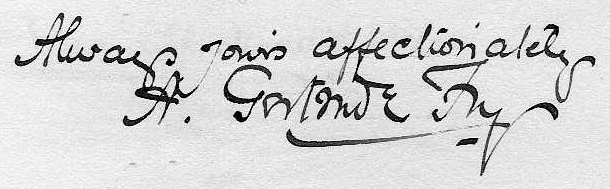 Always yours affectionately
A. Gertrude Fry